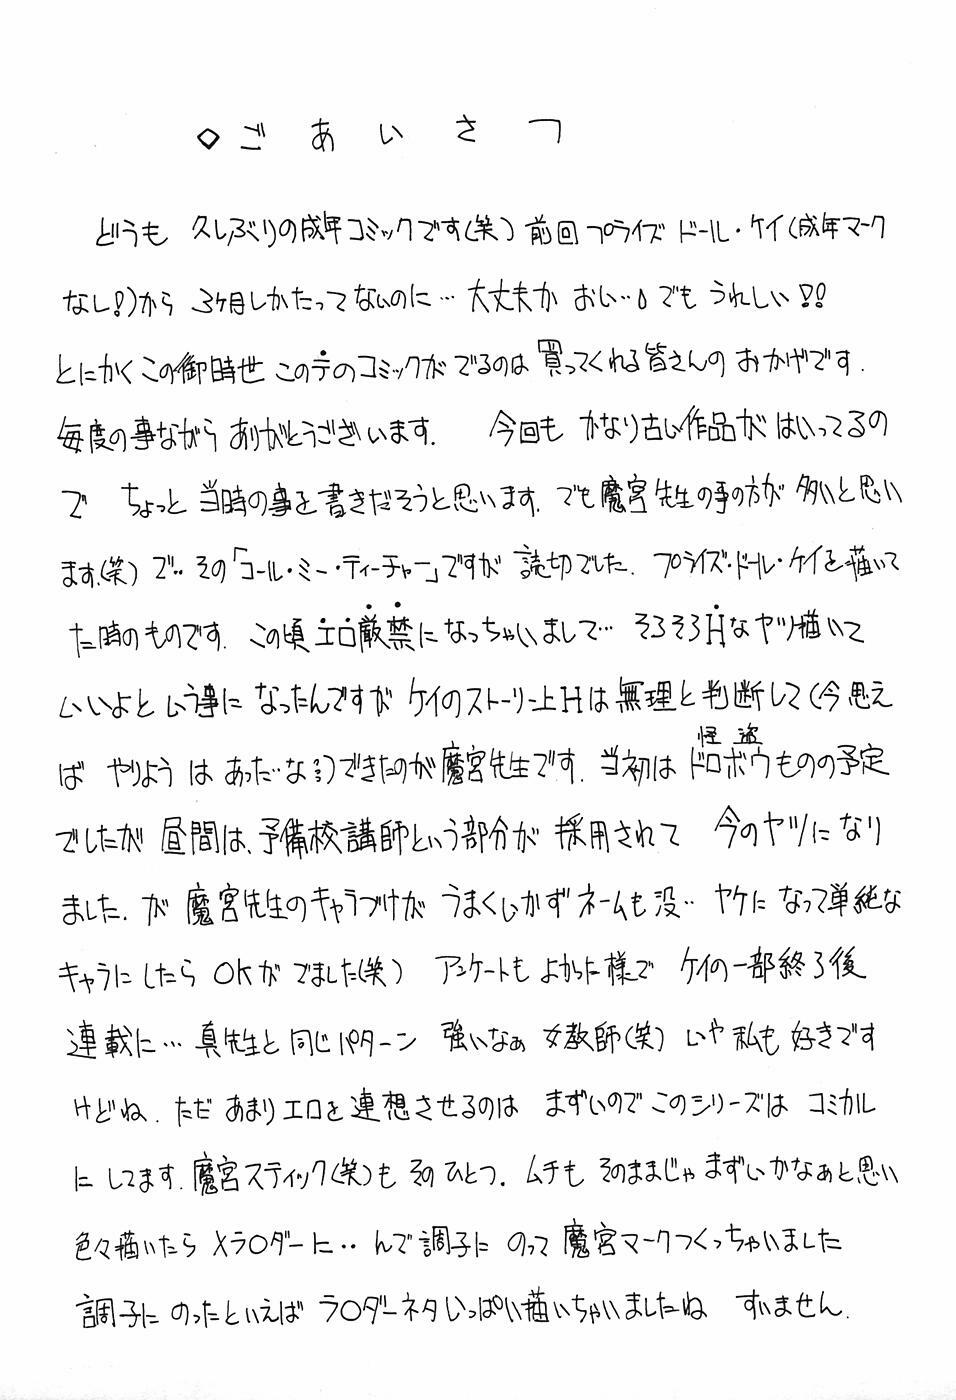 ◇ごあいさつ
どうも 久しぶりの成年コミックです(笑) 前回 プライズ ドール・ケイ(成年マーク
なし!)から 3ヶ月しかたってないのに… 大丈夫か おい…。でも うれしい!!
とにかく この御時世 この手のコミックが でるのは 買ってくれる皆さんの おかげです.
毎度の事ながら ありがとうございます. 今回も かなり古い作品が はいってるの
で ちょっと 当時の事を 書きだそうと思います. でも 魔宮先生の事の方が 多いと思い
ます.(笑) で‥ その「コール・ミー・ティーチャー」ですが 読切でした. プライズ・ドール・ケイを描いて
た時のものです. この頃 エロ厳禁になっちゃいまして… そろそろHなヤツ描いて
いいよと いう事に なったんですが ケイのストーリー上Hは 無理と判断して(今思え
ば やりよう は あった‥な)できたのが 魔宮先生です. 当初は 怪盗ドロボウものの予定
でしたが 昼間は、予備校講師という部分が 採用されて 今のヤツになり
ました. が 魔宮先生のキャラづけが うまくいかず ネームも没‥ ヤケになって単純な
キャラにしたら OKが でました(笑) アンケートも よかった様で ケイの一部終了後
連載に… 真先生と 同じパターン 強いなぁ 女教師(笑) いや 私も 好きです
けどね. ただ あまりエロを 連想させるのは まずいので このシリーズは コミカル
に してます. 魔宮スティック(笑)も そのひとつ. ムチも そのままじゃ まずいかなぁと思い
色々描いたら メラ○ダーに‥ んで 調子に のって 魔宮マークつくっちゃいました
調子に のったといえば ラ○ダーネタ いっぱい描いちゃいましたね すいません.